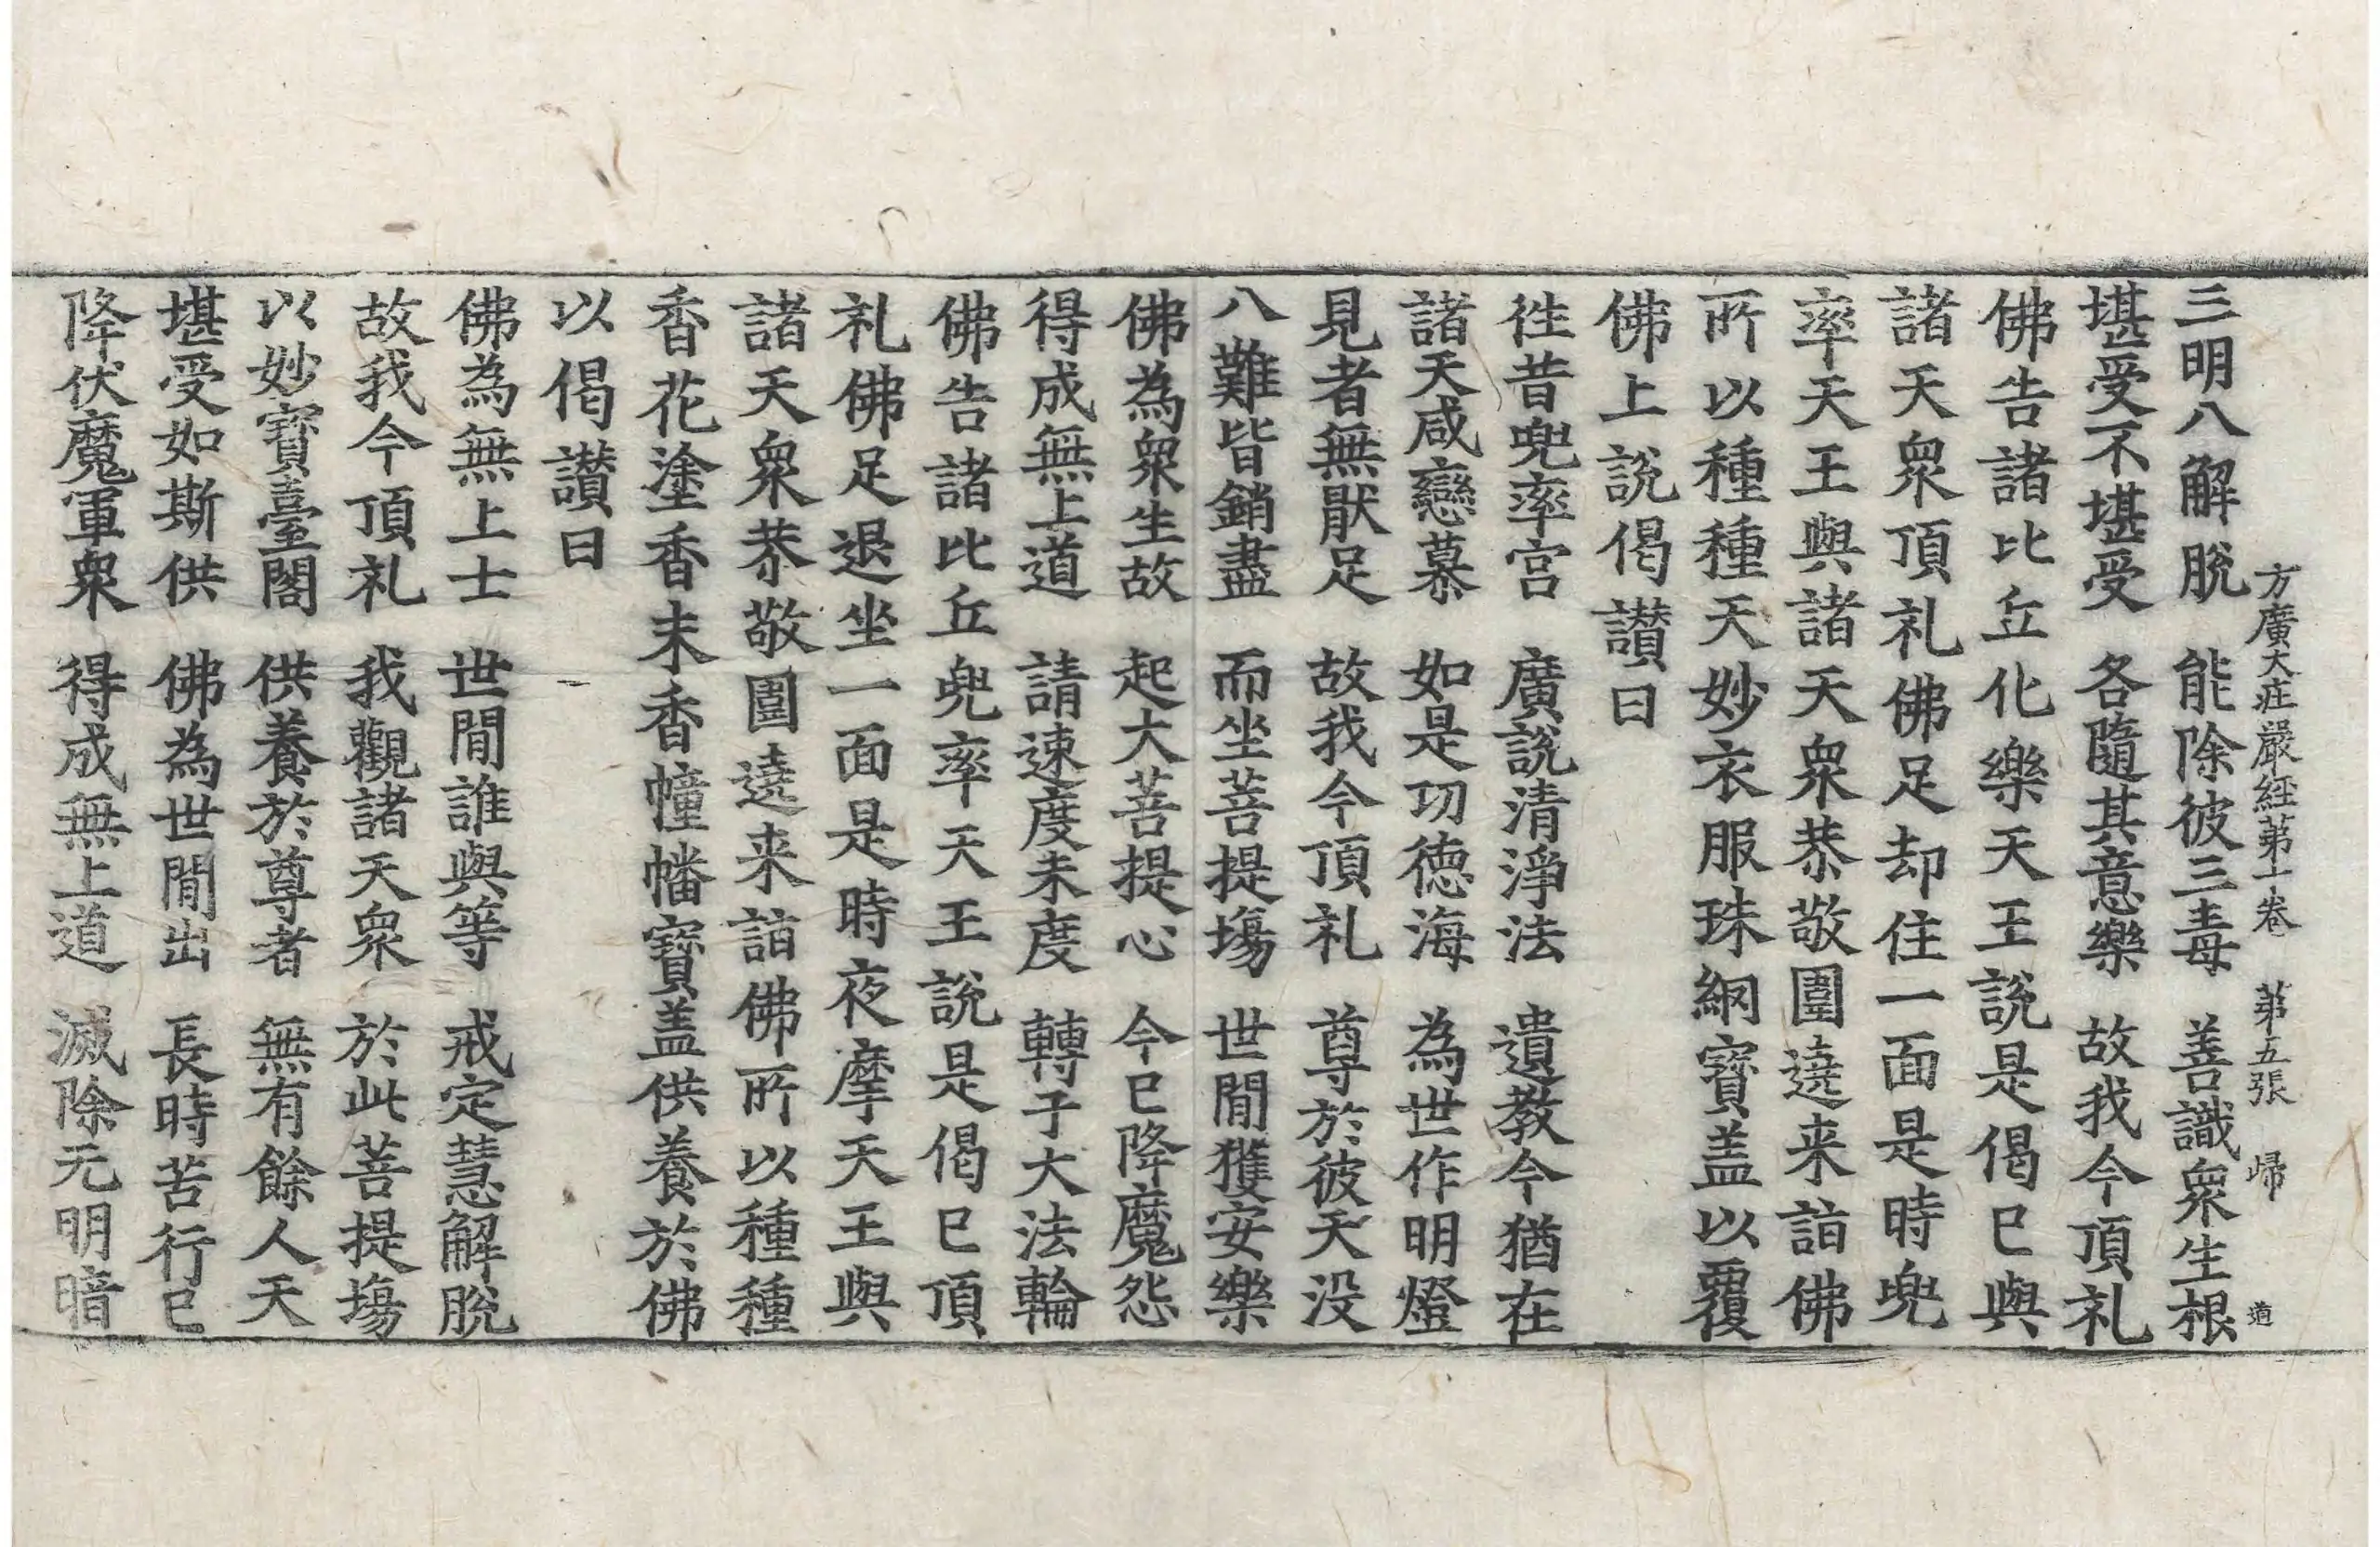 方廣大庄嚴経苐十卷　苐五張　歸　道
三明八解脫　能除彼三毒　善識衆生根
堪受不堪受　各隨其意樂　故我今頂礼
佛告諸比丘化樂天王說是偈已與
諸天衆頂礼佛足却住一面是時兜
率天王與諸天衆恭敬圍遶来詣佛
所以種種天妙衣服珠網寶盖以覆
佛上說偈讃曰
徃昔兜率宫　廣說清淨法　遺教今猶在
諸天咸戀慕　如是功德海　為世作明燈
見者無猒足　故我今頂礼　尊於彼天没
八難皆銷盡　而坐菩提塲　世閒獲安樂
佛為衆生故　起大菩提心　今已降魔怨
得成無上道　請速度未度　轉于大法輪
佛告諸比丘兜率天王說是偈已頂
礼佛足退坐一面是時夜摩天王與
諸天衆恭敬圍遶来詣佛所以種種
香花塗香末香幢幡寶盖供養於佛
以偈讃曰
佛為無上士　世閒誰與等　戒定慧解脫
故我今頂礼　我觀諸天衆　於此菩提塲
以妙寶臺閣　供養於尊者　無有餘人天
堪受如斯供　佛為世閒出　長時苦行已
降伏魔軍衆　得成無上道　滅除无明暗